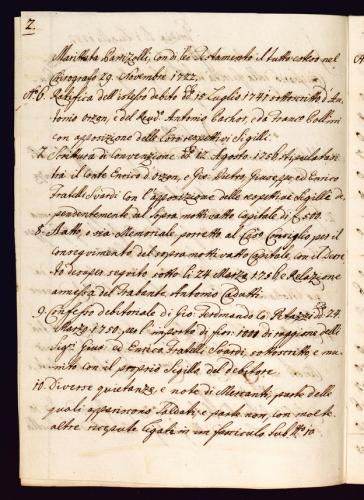 2.
Marittata Partizolli, con di lei Testamento il tutto esteso nel
Chirografo 29. Novembre 1722.
N.º 6. Ratifica dell' istesso debito dº 15 Luglio 1741 sottoscritto d' An-
tonio Orzon, e del Rev.do Antonio Bachor, e da Franco Collini
con apposizione delle Loro respettivi Sigilli.
7. Scrittura di Convenzione dº 12. Agosto 1756. stipulatasi
trà il Conte Enrico d' Orzon, e Gio: Pietro, Giuseppe, ed Enrico
Fratelli Suardi con l' apposizione delle respettivi Sigilla de-
pendentemente dal sopra mottivatto Capitale di
8. Statto, o sia Memoriale, porretto al Ces.º Consiglio per il
conseguimento del sopra mottivatto Capitale, con il Decre-
to de super seguito sotto li 24 Marzo 1756 e Relazione
annessa del Trabante Antonio Cadatti.
9. Confesso debitoriale di Gio: Ferdinando Co: Petazzi dº 24.
Marzo 1750, per l' importo di fior: 1000 di raggione delli
Sig.ri Gius: ed Enrico Fratelli Soardi, sottoscritto, e mu-
nito con il proprio Sigillo del debitore.
10. Diverse quietanze, e note di Mercanti, parte delle
quali appariscono Saldati, e parte non, con molte
altre recepute legati in un fasciculo Sub N.º 10